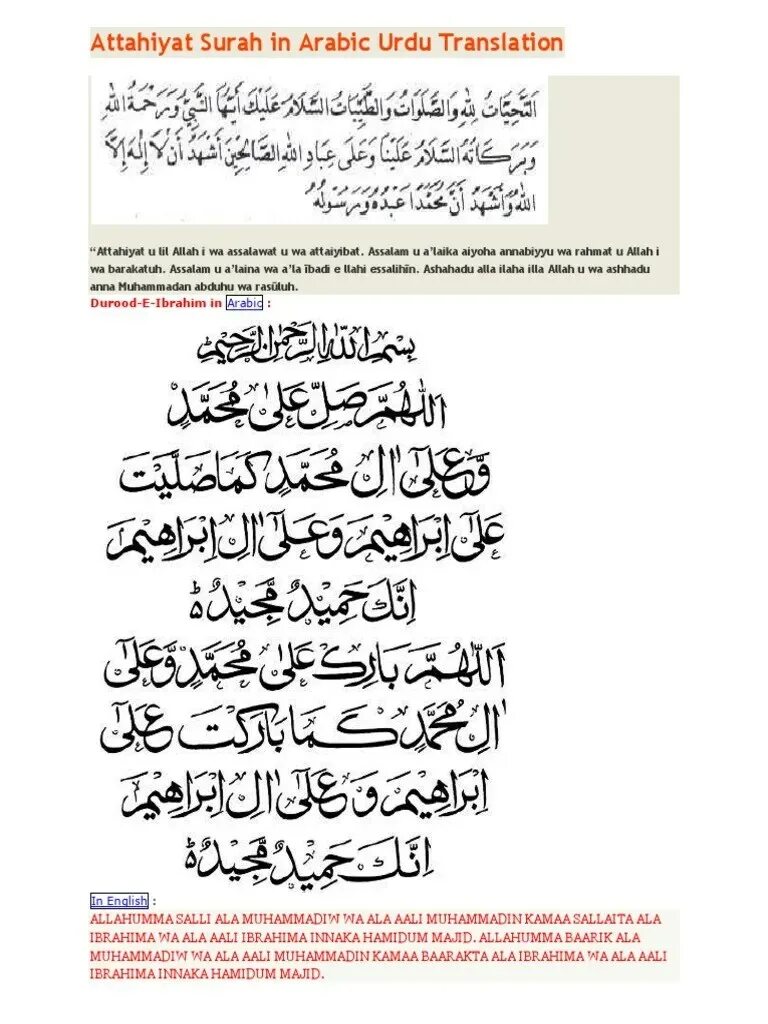 Attahiyat Surah in Arabic Urdu Translation
اَلتَّحِيَّاتُ لِلّٰهِ وَالصَّلَوَاتُ وَالطَّيِّبَاتُ السَّلَامُ عَلَيْكَ أَيُّهَا النَّبِيُّ وَرَحْمَةُ اللّٰهِ
وَبَرَكَاتُهُ السَّلَامُ عَلَيْنَا وَعَلَى عِبَادِ اللّٰهِ الصَّالِحِيْنَ أَشْهَدُ أَنْ لَا إِلٰهَ إِلَّا
اللّٰهُ وَأَشْهَدُ أَنَّ مُحَمَّدًا عَبْدُهُ وَرَسُوْلُهُ
“Attahiyat u lil Allah i wa assalawat u wa attaiyibat. Assalam u a’laika aiyoha annabiyyu wa rahmat u Allah i
wa barakatuh. Assalam u a’laina wa a’la ībadi e llahi essalihīn. Ashahadu alla ilaha illa Allah u wa ashhadu
anna Muhammadan abduhu wa rasūluh.
Durood-E-Ibrahim in Arabic :
بِسْمِ اللّٰهِ الرَّحْمٰنِ الرَّحِيْمِ
اَللّٰهُمَّ صَلِّ عَلٰى مُحَمَّدٍ
وَّعَلٰٓى اٰلِ مُحَمَّدٍ كَمَا صَلَّيْتَ
عَلٰٓى اِبْرَاهِيْمَ وَعَلٰٓى اٰلِ اِبْرَاهِيْمَ
اِنَّكَ حَمِيْدٌ مَّجِيْدٌ ؕ
اَللّٰهُمَّ بَارِكْ عَلٰى مُحَمَّدٍ وَّعَلٰٓى
اٰلِ مُحَمَّدٍ كَمَا بَارَكْتَ عَلٰٓى
اِبْرَاهِيْمَ وَعَلٰٓى اٰلِ اِبْرَاهِيْمَ
اِنَّكَ حَمِيْدٌ مَّجِيْدٌ ؕ
In English :
ALLAHUMMA SALLI ALA MUHAMMADIW WA ALA AALI MUHAMMADIN KAMAA SALLAITA ALA
IBRAHIMA WA ALA AALI IBRAHIMA INNAKA HAMIDUM MAJID. ALLAHUMMA BAARIK ALA
MUHAMMADIW WA ALA AALI MUHAMMADIN KAMAA BAARAKTA ALA IBRAHIMA WA ALA AALI
IBRAHIMA INNAKA HAMIDUM MAJID.